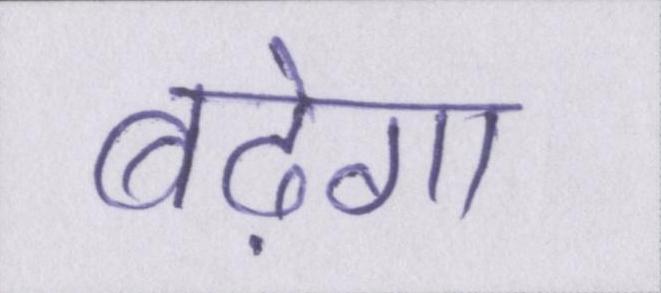 बढ़ेगा